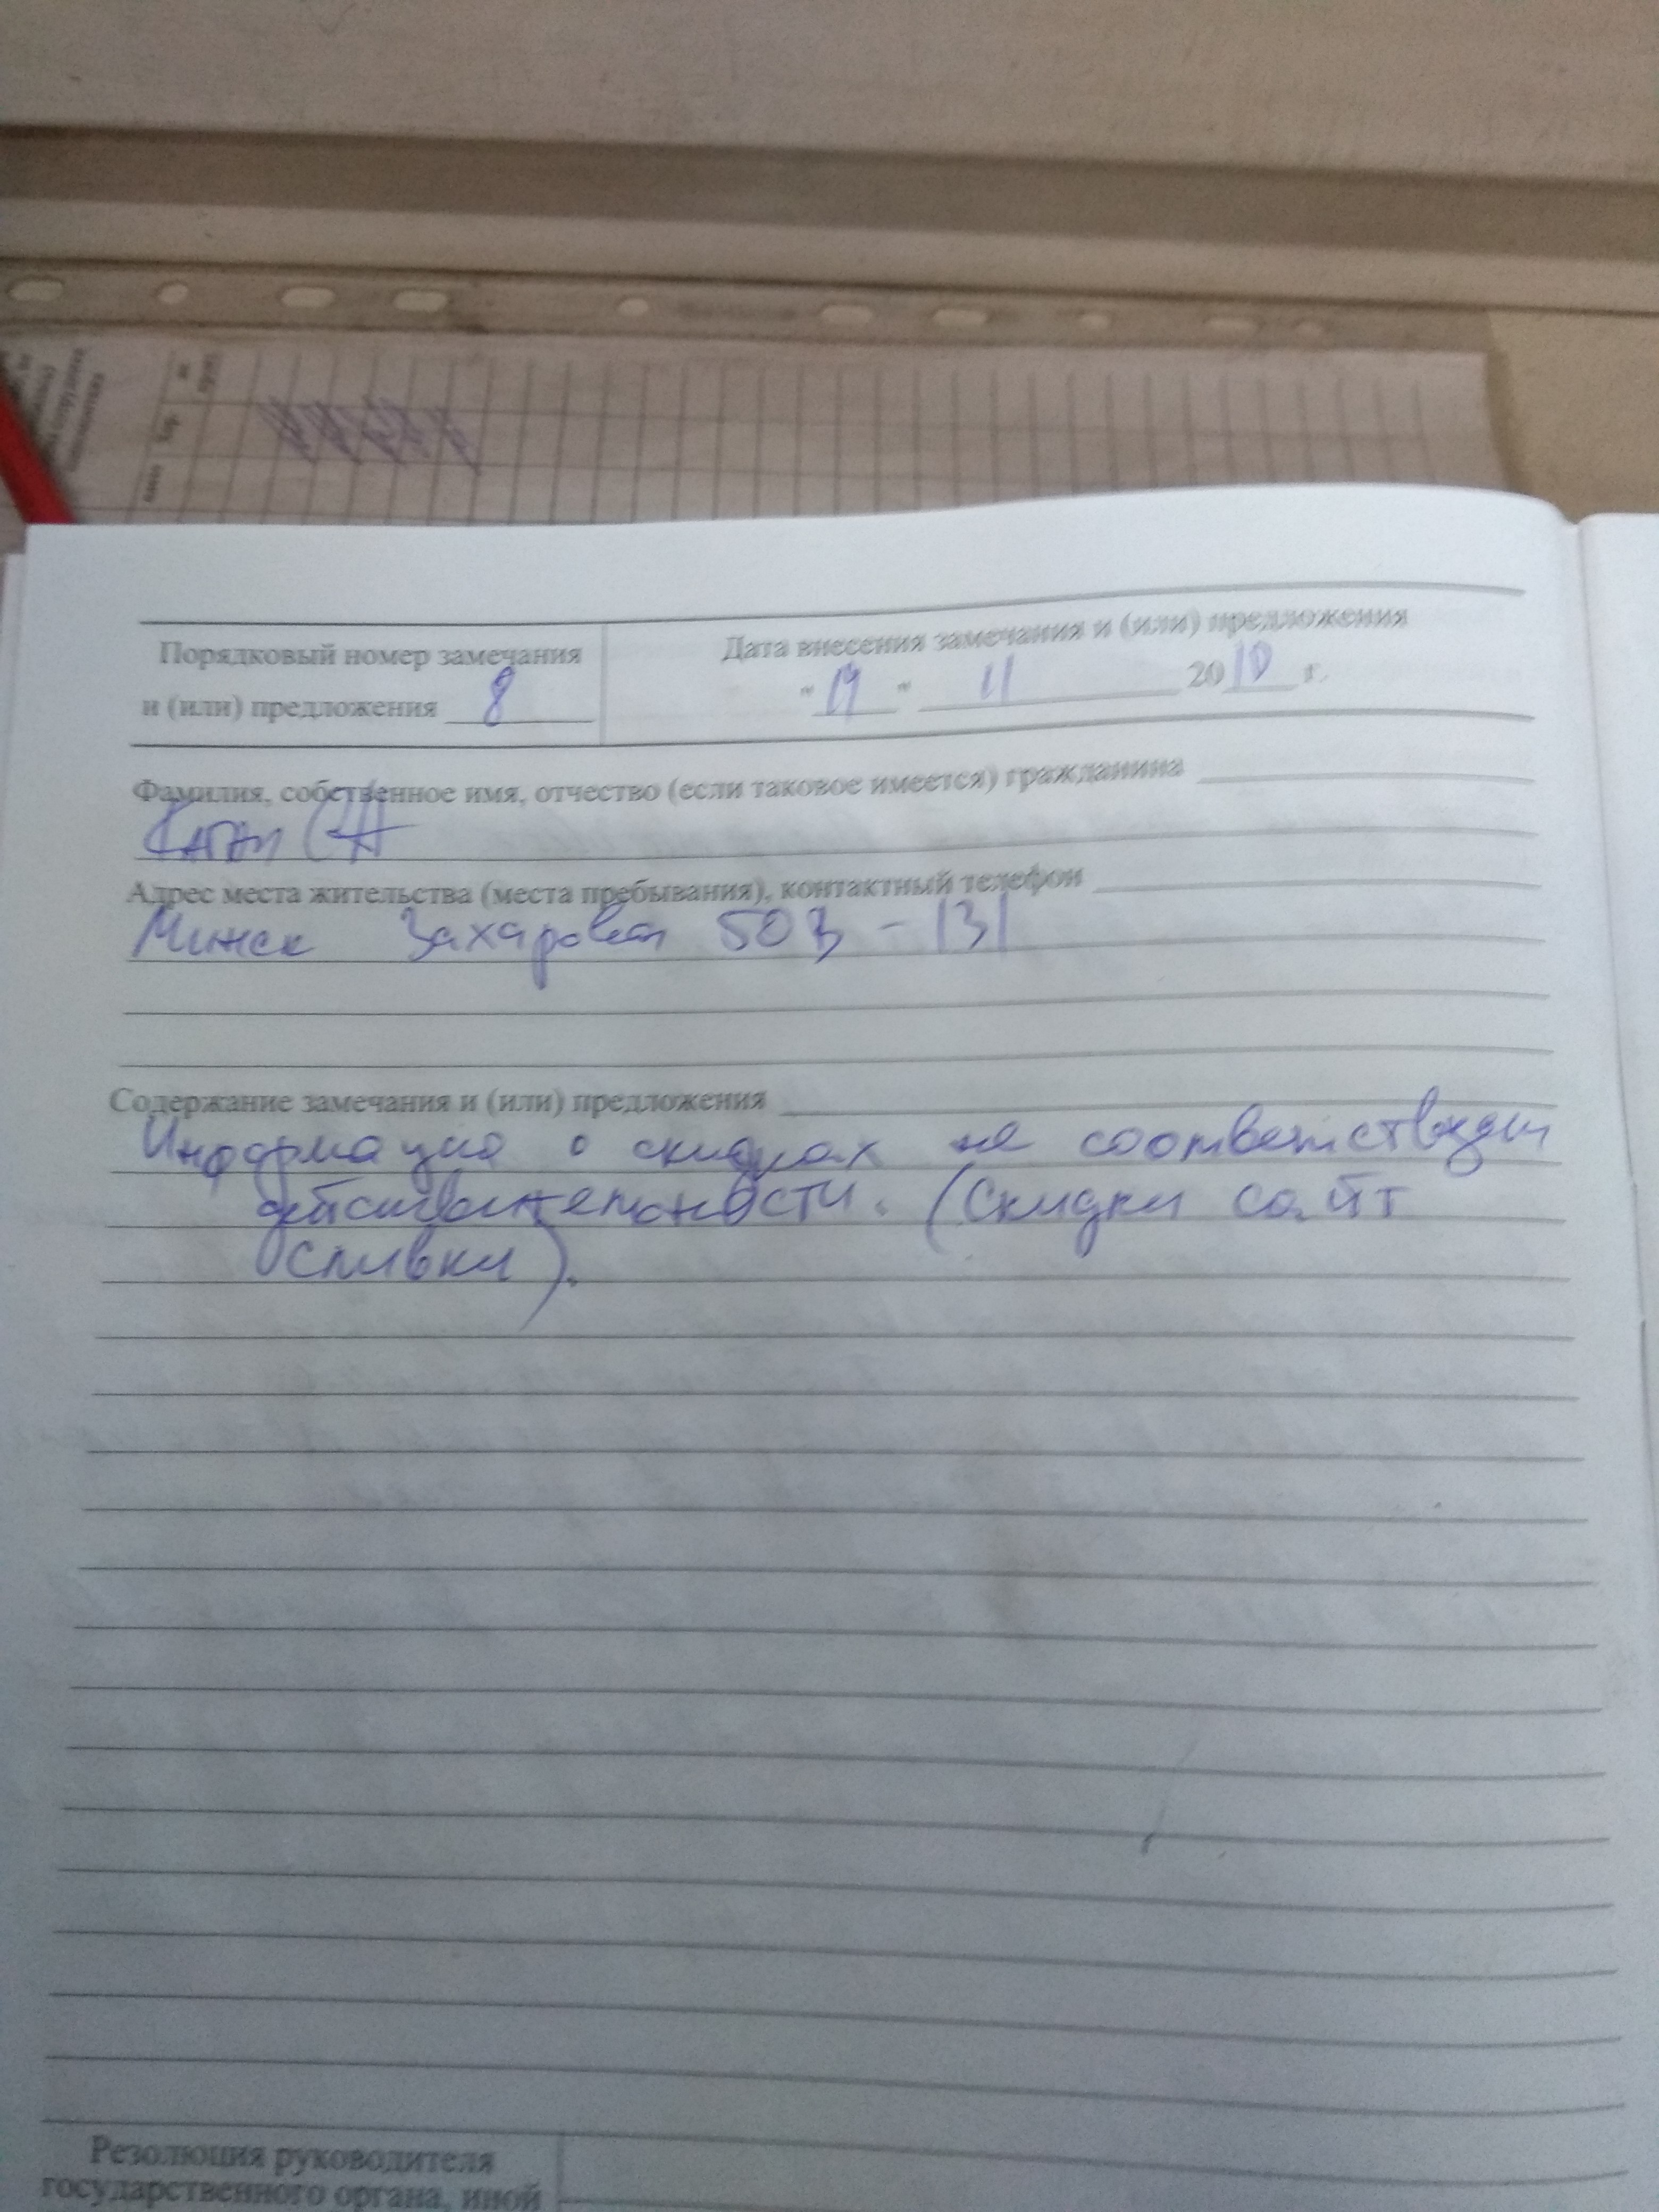 Порядковый номер замечания
и (или) предложения 8
Дата внесения замечания и (или) предложения
" 19 " 11 2010 г.
Фамилия, собственное имя, отчество (если таковое имеется) гражданина
Адрес места жительства (места пребывания), контактный телефон
Минск Захарова 50В - 131
Содержание замечания и (или) предложения
Информация о скидках не соответствует
действительности. (Скидки сайт
Сливки).
Резолюция руководителя
государственного органа, иной